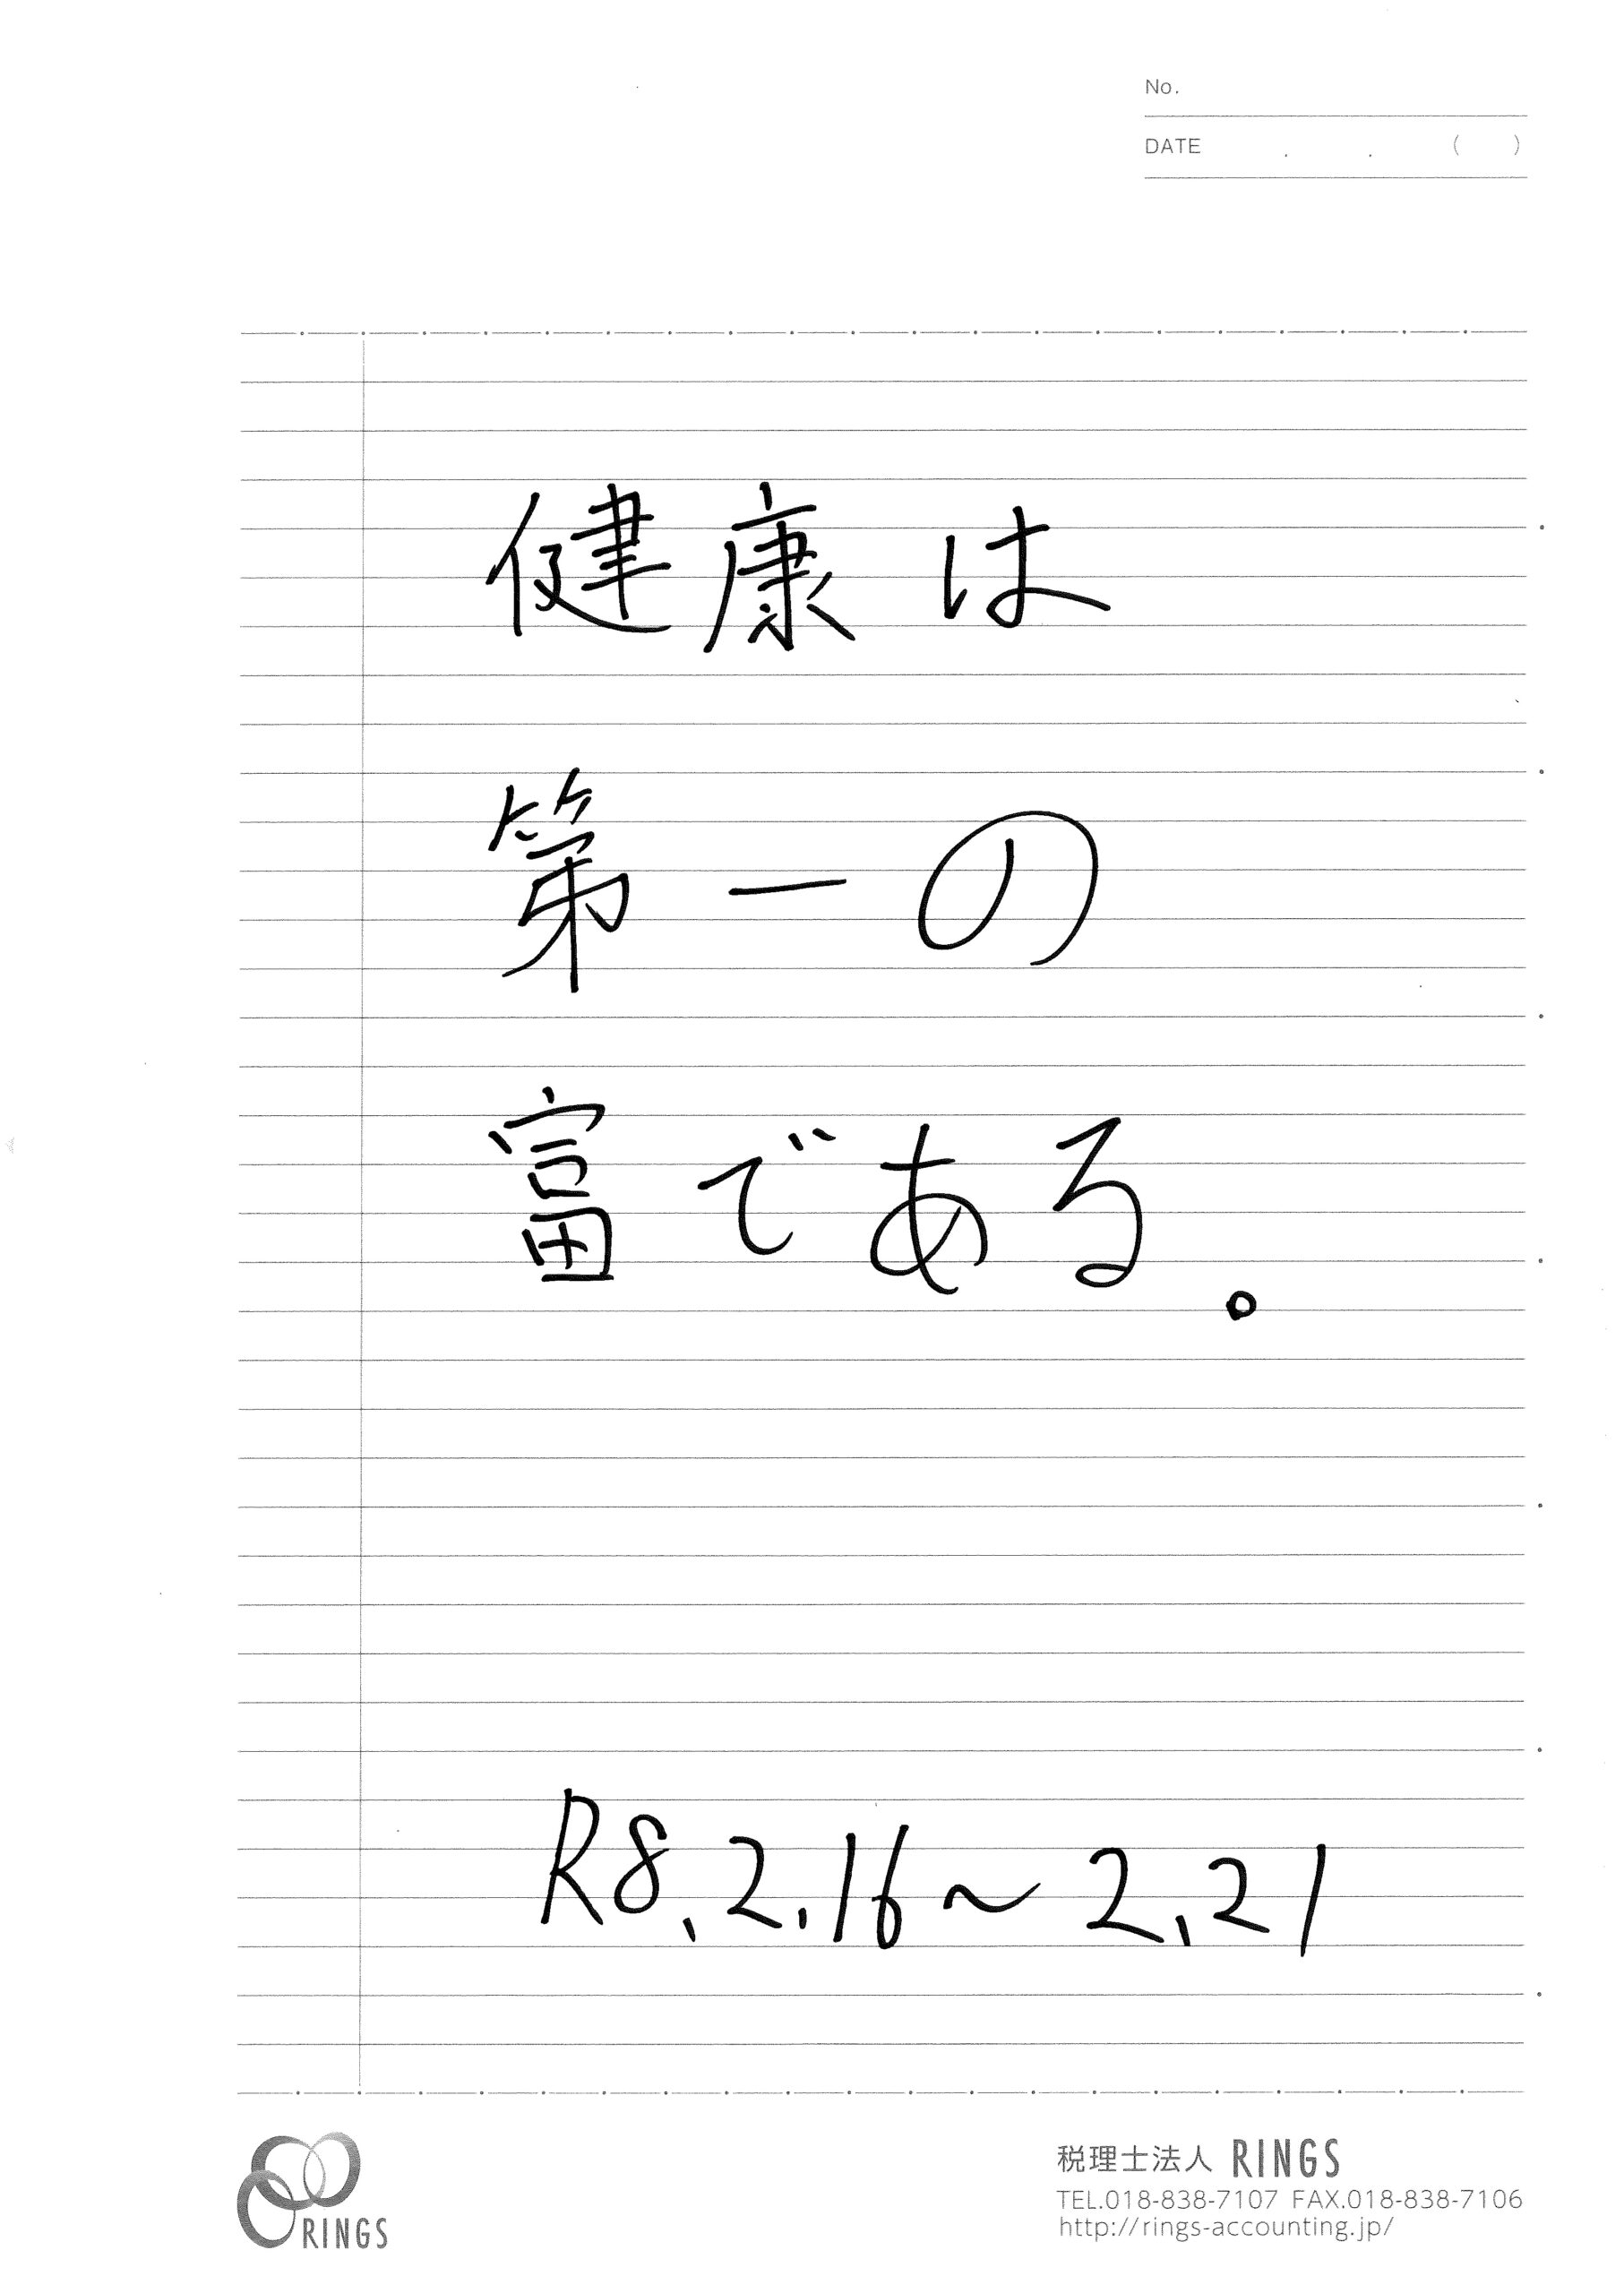 No.
DATE . . ( )
健康は
第一の
富である。
R8.2.16～2.21
RINGS
税理士法人 RINGS
TEL.018-838-7107 FAX.018-838-7106
http://rings-accounting.jp/